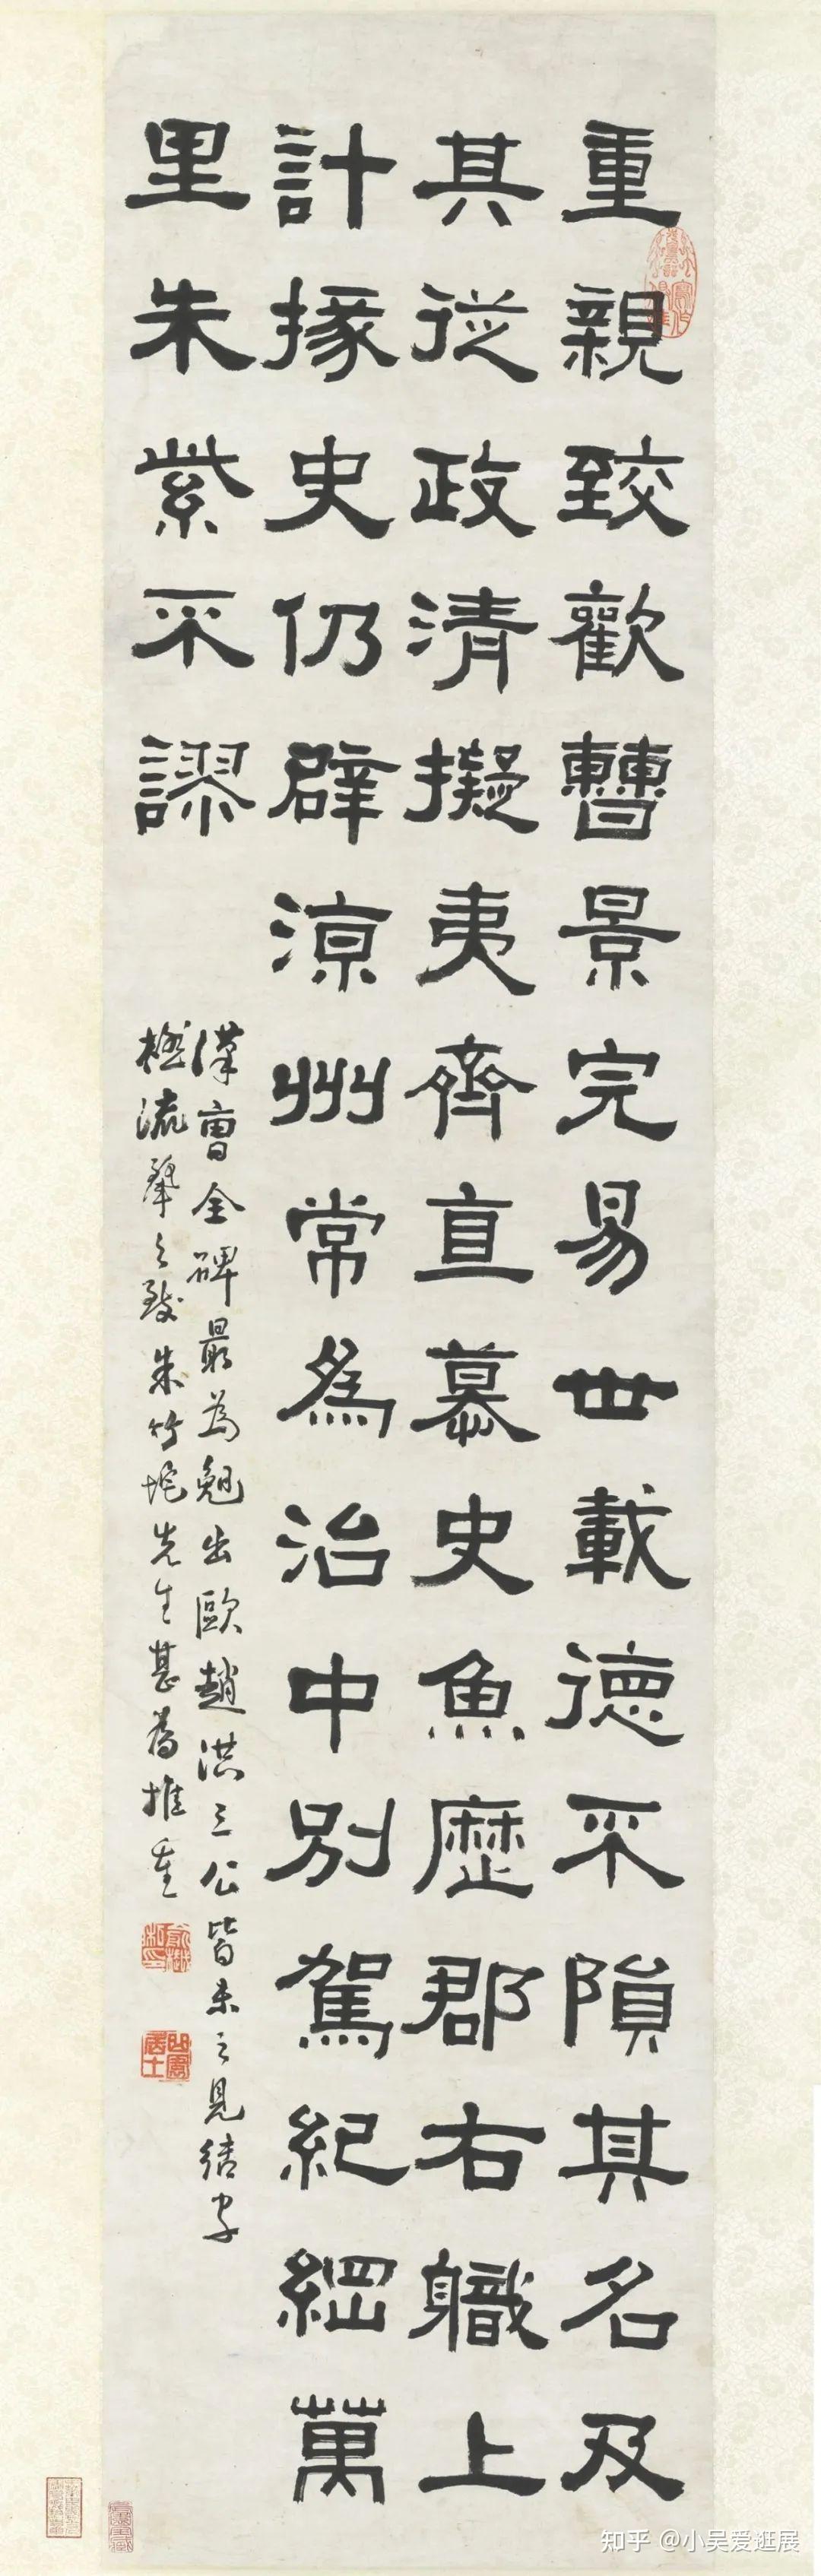 重親致歡曹景完易世載德不隕其名及
其從政清擬夷齊直慕史魚歷郡右職上
計掾史仍辟涼州常為治中別駕紀綱萬
里朱紫不謬
漢曹全碑最為勉出歐趙洪三公皆未之見結字
流麗之致朱竹垞先生甚為推重
知乎 @小吴爱逛展